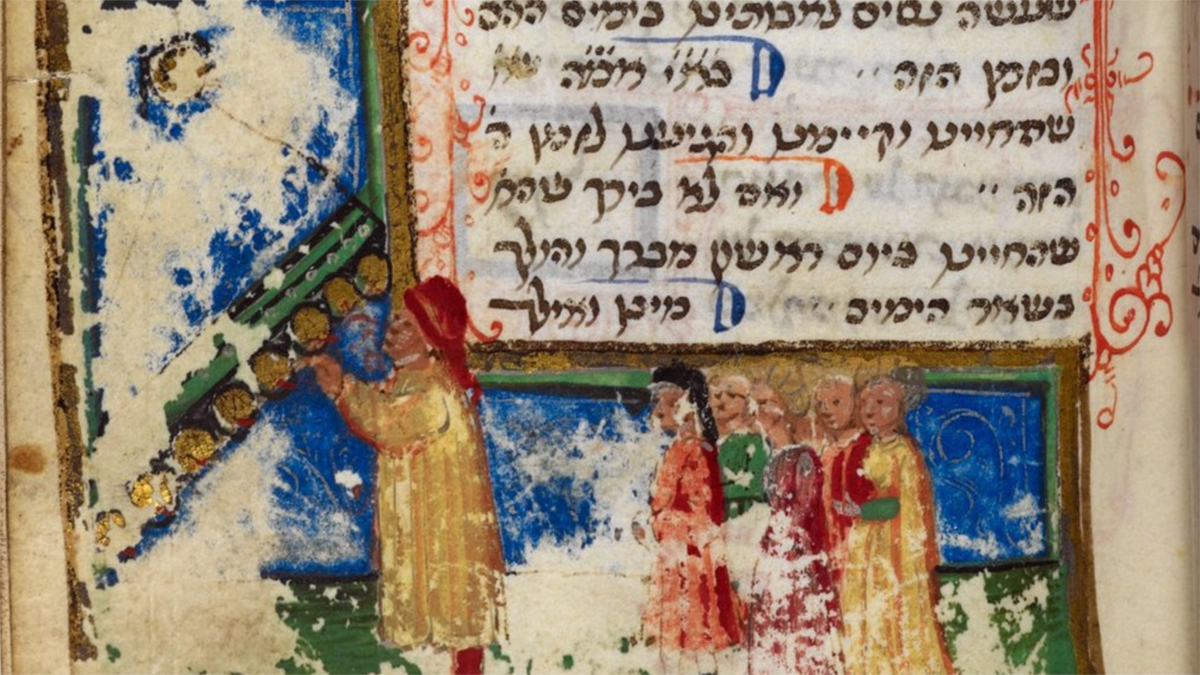 שעשה נסים לאבותינו בימים ההם
ובזמן הזה בא״י אמ״ה
שהחיינו וקיימנו והגיענו לזמן ה
הזה ואם לא בירך שהח׳
שהחיינו ביום ראשון מברך והולך
בשאר הימים מיכן ואילך